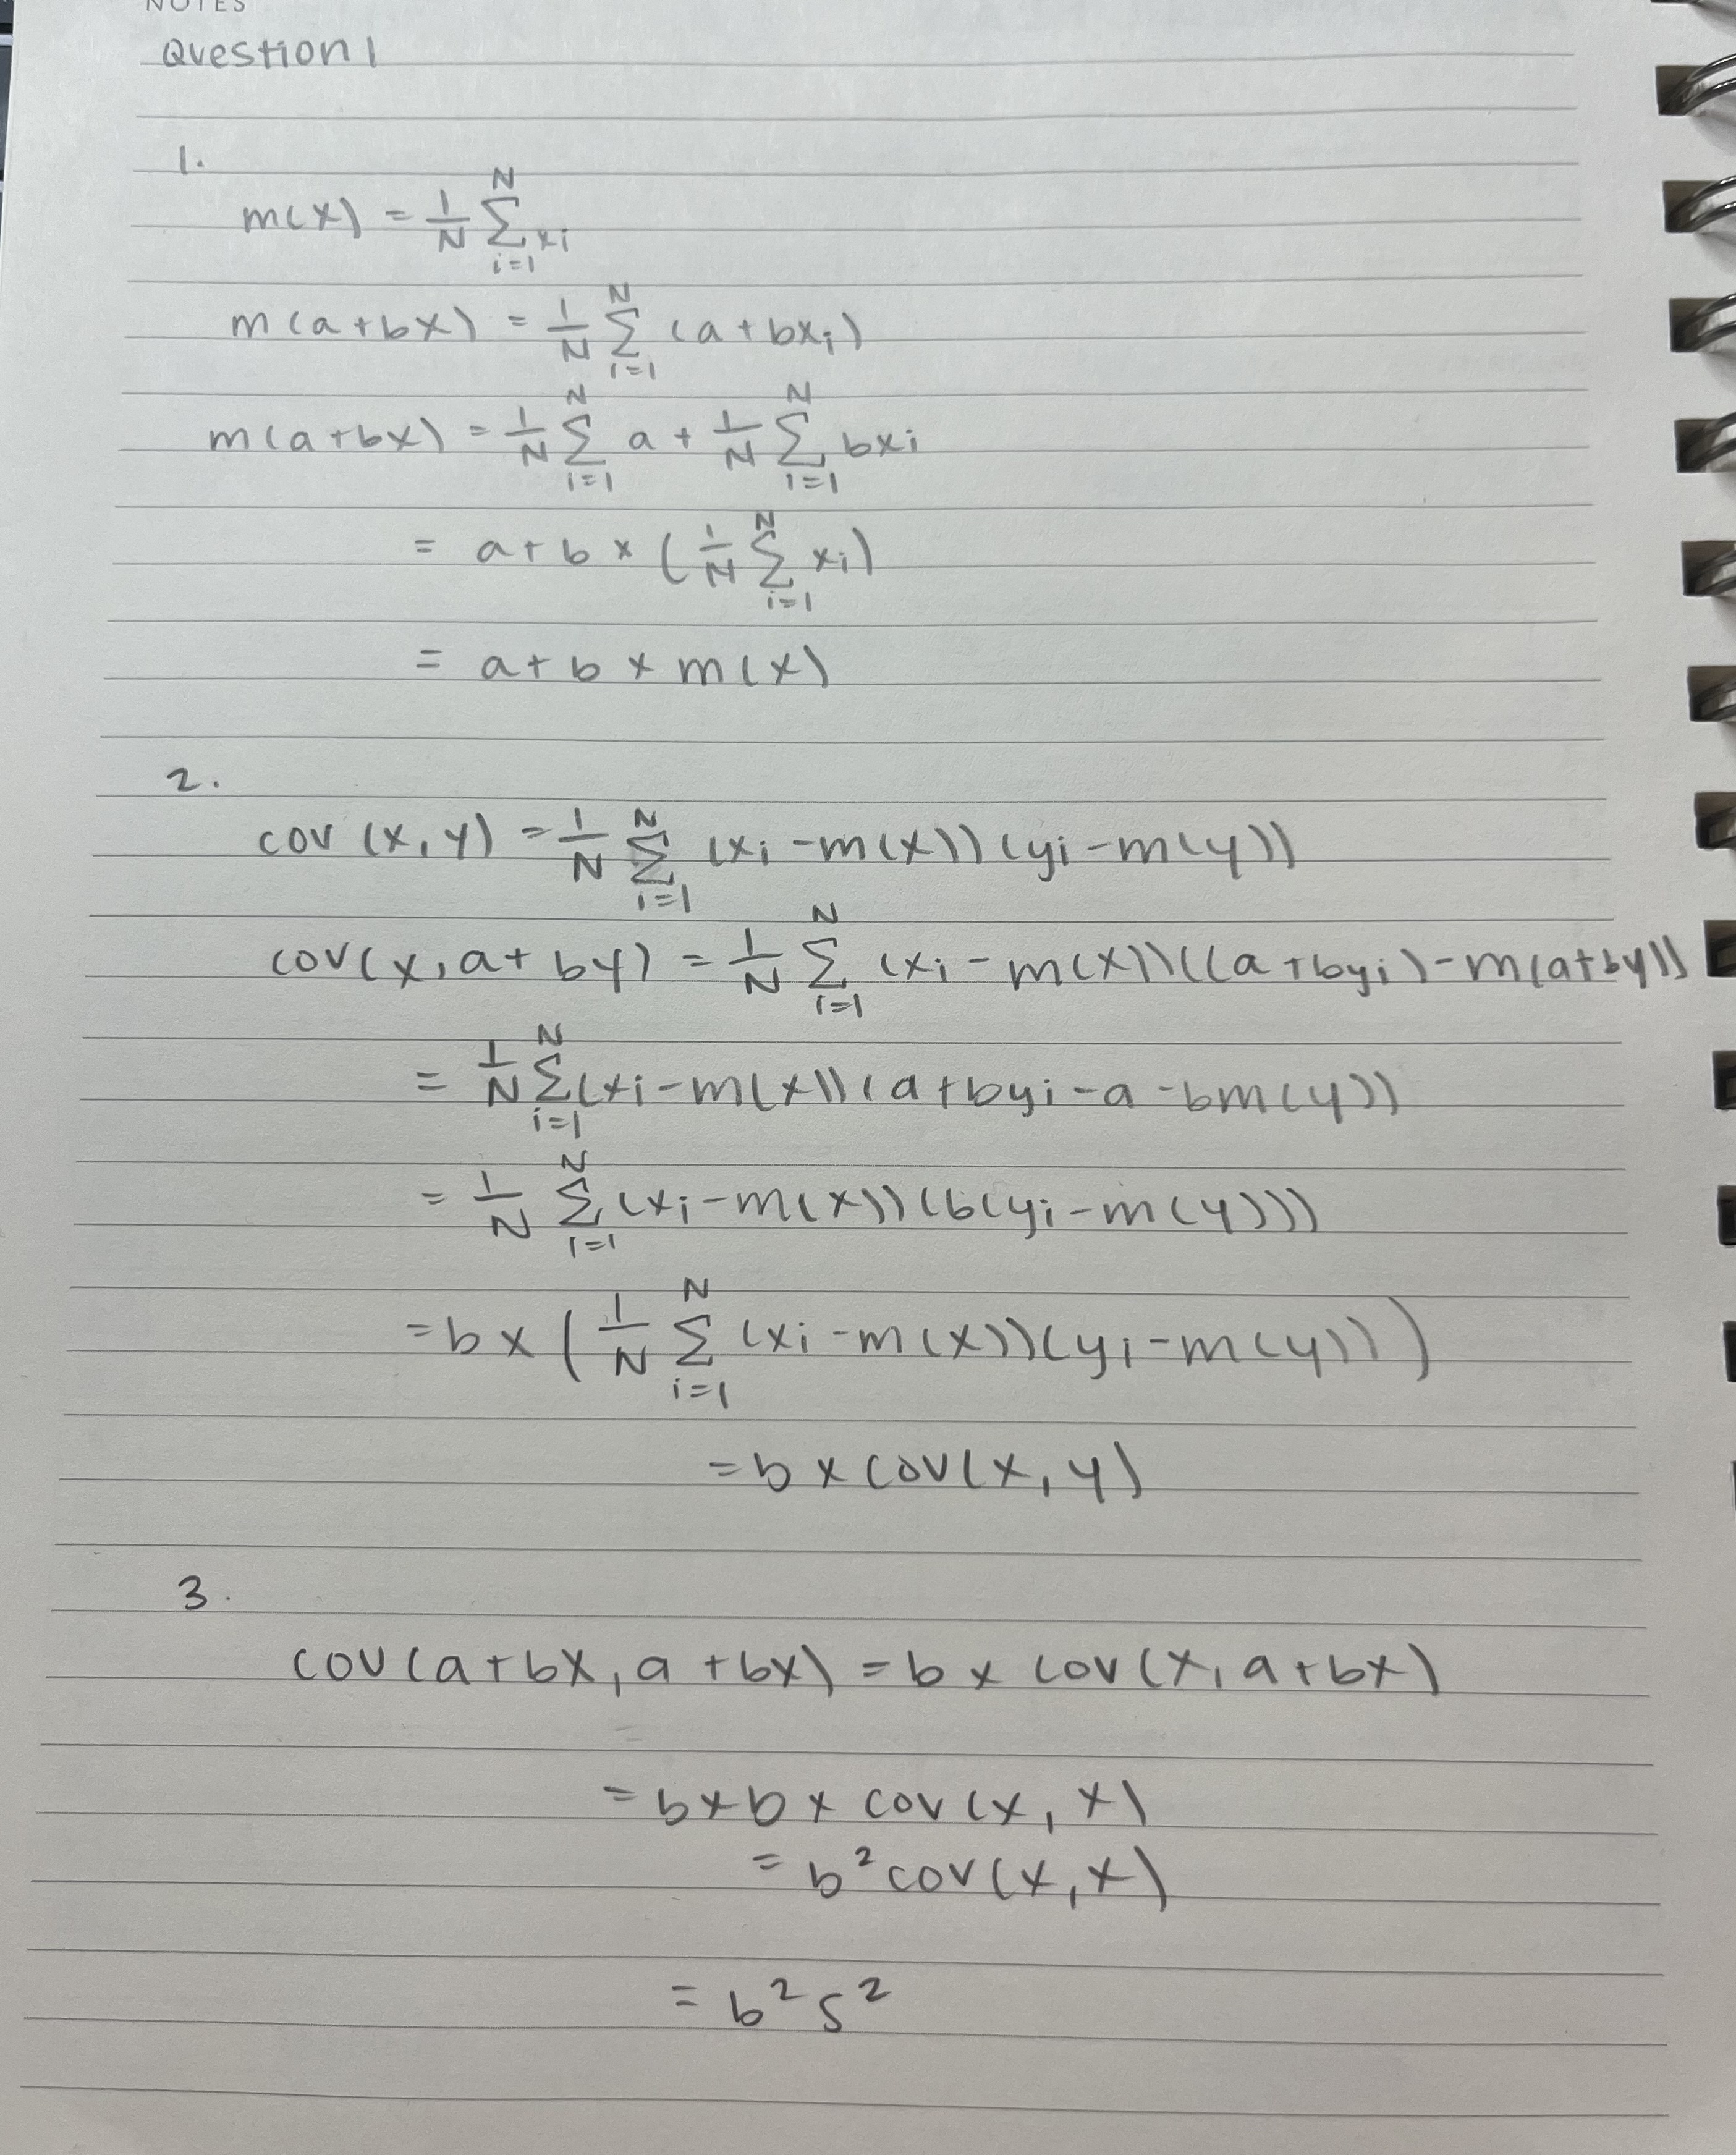 NOTES
Question 1
1.
m(x) = 1/N Σ_{i=1}^{N} xi
m(a+bx) = 1/N Σ_{i=1}^{N} (a+bxi)
m(a+bx) = 1/N Σ_{i=1}^{N} a + 1/N Σ_{i=1}^{N} bxi
= a+b × (1/N Σ_{i=1}^{N} xi)
= a+b × m(x)
2.
cov(x,y) = 1/N Σ_{i=1}^{N} (xi-m(x))(yi-m(y))
cov(x,a+by) = 1/N Σ_{i=1}^{N} (xi-m(x))((a+byi)-m(a+by))
= 1/N Σ_{i=1}^{N} (xi-m(x))(a+byi-a-bm(y))
= 1/N Σ_{i=1}^{N} (xi-m(x))(b(yi-m(y)))
= b × (1/N Σ_{i=1}^{N} (xi-m(x))(yi-m(y)))
= b × cov(x,y)
3.
cov(a+bx,a+bx) = b × cov(x,a+bx)
= b×b × cov(x,x)
= b²cov(x,x)
= b²s²